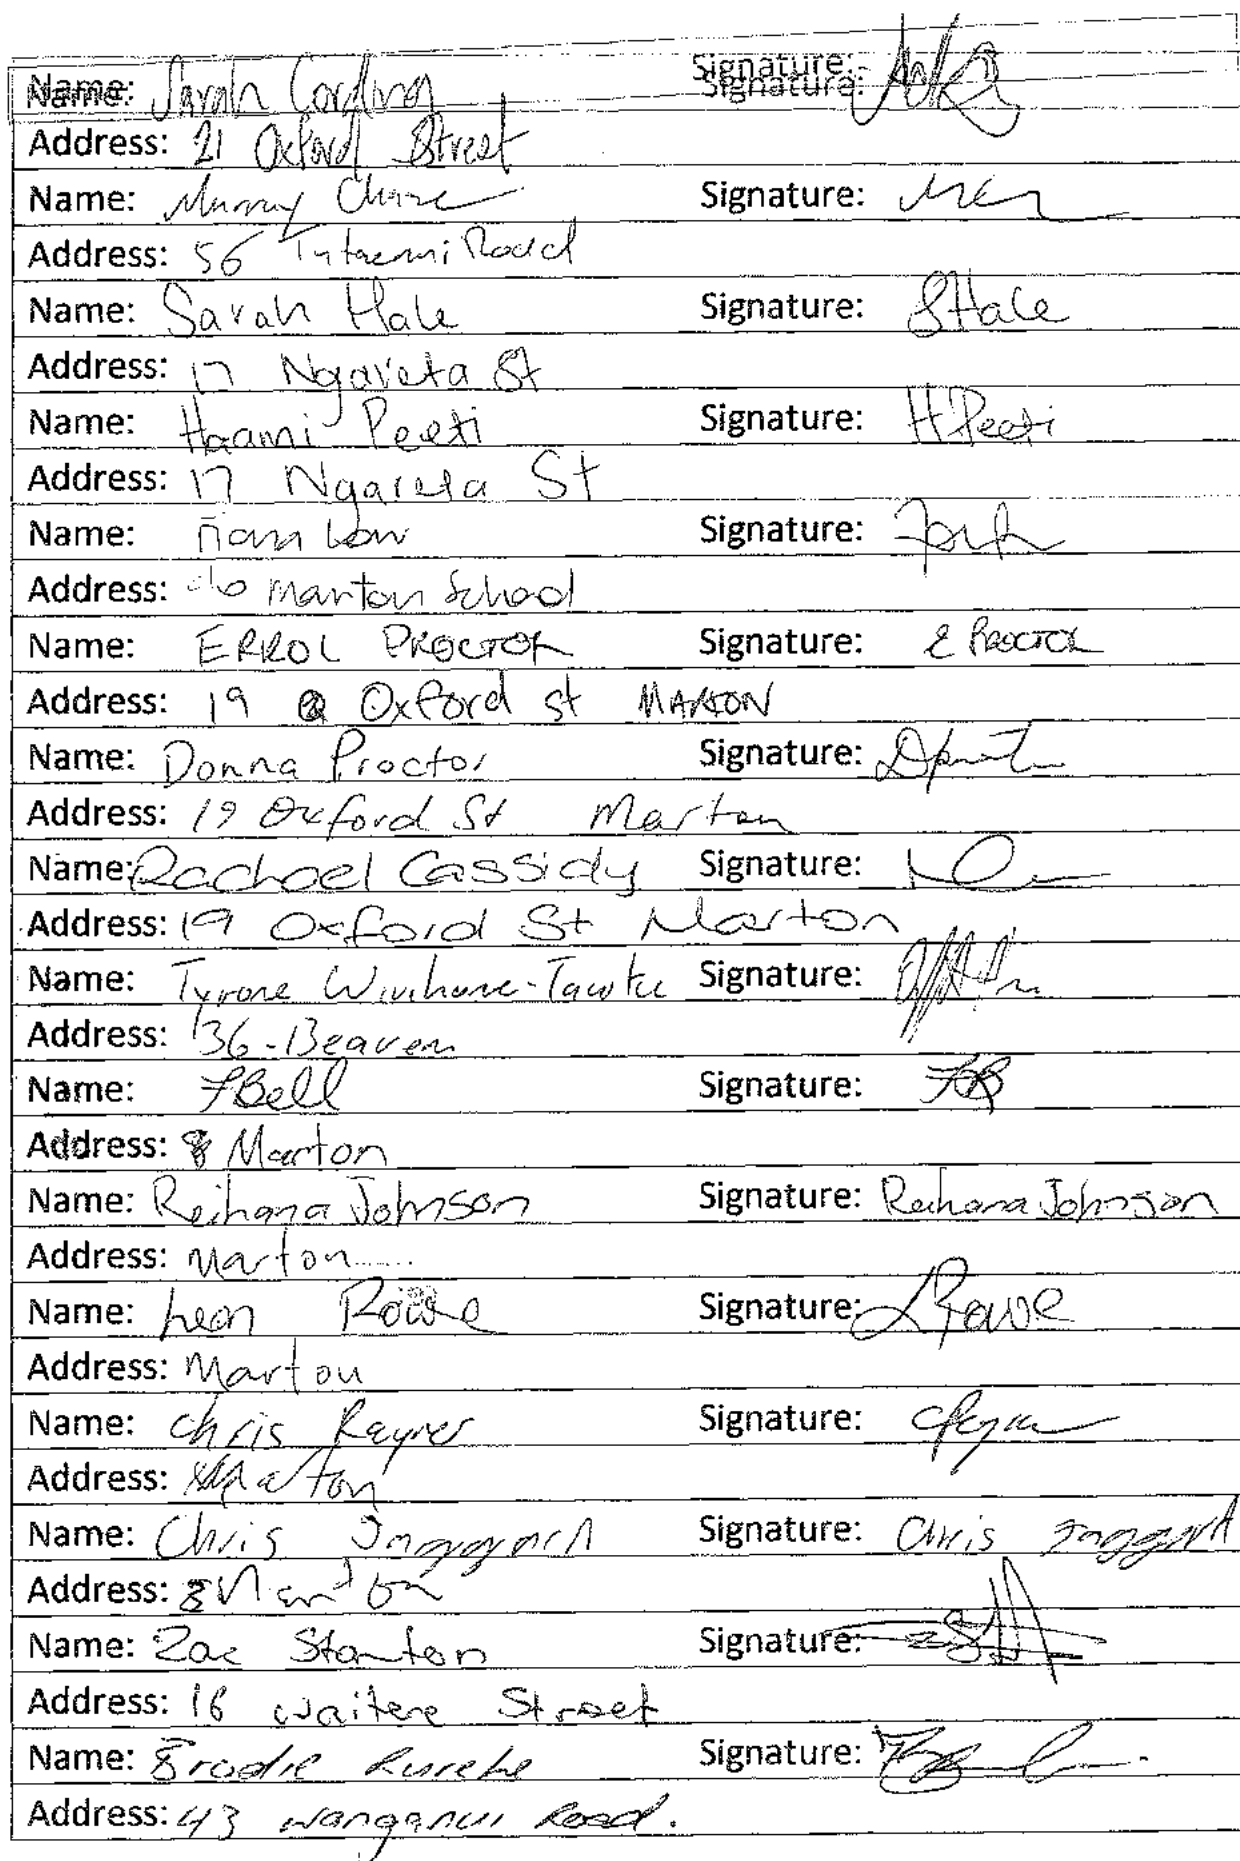 Name: Sarah Cording Signature:
Address: 21 Oxford Street
Name: Murray Signature:
Address: 56 Tutaenui Road
Name: Sarah Hale Signature: SHale
Address: 17 Ngareta St
Name: Haami Peeti Signature: H Peeti
Address: 17 Ngareta St
Name: Signature:
Address: c/o Marton School
Name: ERROL PROCTOR Signature: E PROCTOR
Address: 19 Oxford st MARTON
Name: Donna Proctor Signature:
Address: 19 Oxford St Marton
Name: Rachael Cassidy Signature:
Address: 19 Oxford St Marton
Name: Tyrone Signature:
Address: 36 - Beaven
Name: F Bell Signature:
Address: Marton
Name: Reihana Johnson Signature: Reihana Johnson
Address: Marton
Name: Leon Rowe Signature: L Rowe
Address: Marton
Name: Chris Rayner Signature:
Address: Marton
Name: Chris Jaggard Signature: Chris Jaggard
Address: Marton
Name: Zac Stanton Signature:
Address: 16 Waitere Street
Name: Brodie Signature:
Address: 43 Wanganui Road.